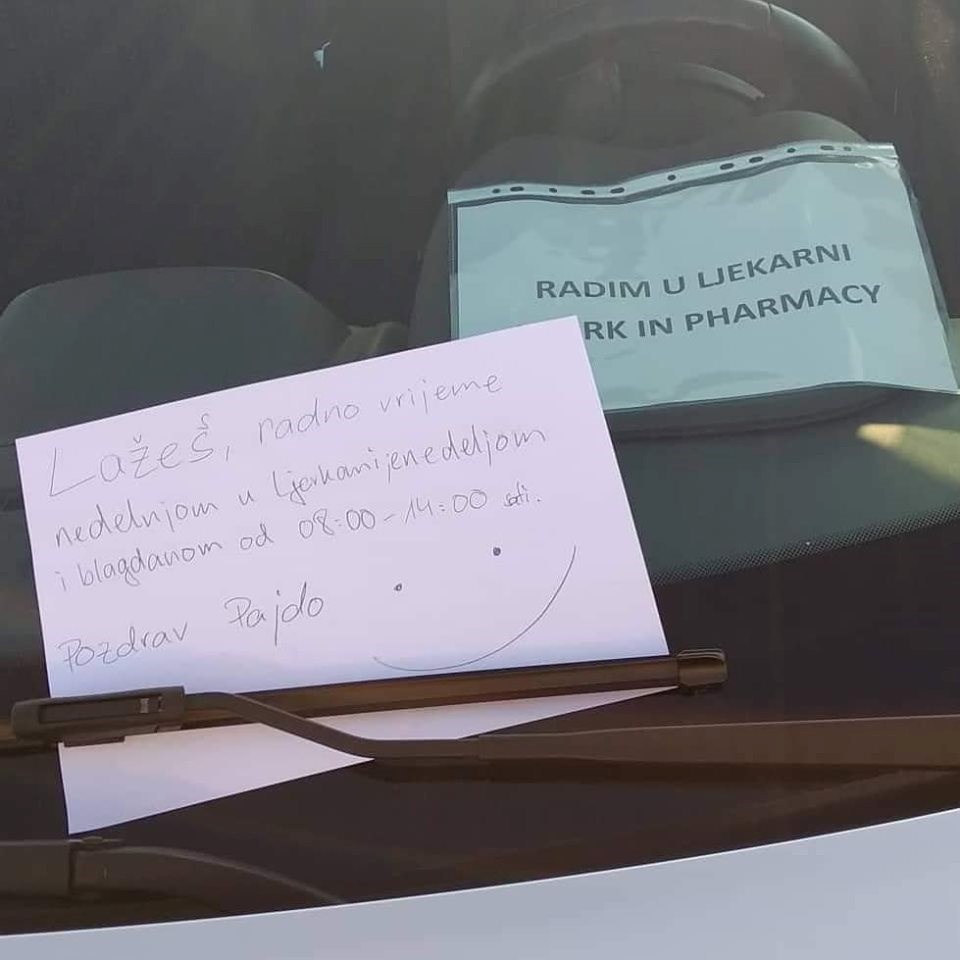 RADIM U LJEKARNI
RK IN PHARMACY
Lažeš, radno vrijeme
nedelnjom u Ljerkamijenedeljom
i blagdanom od 08:00-14:00 sati.
Pozdrav Pajdo